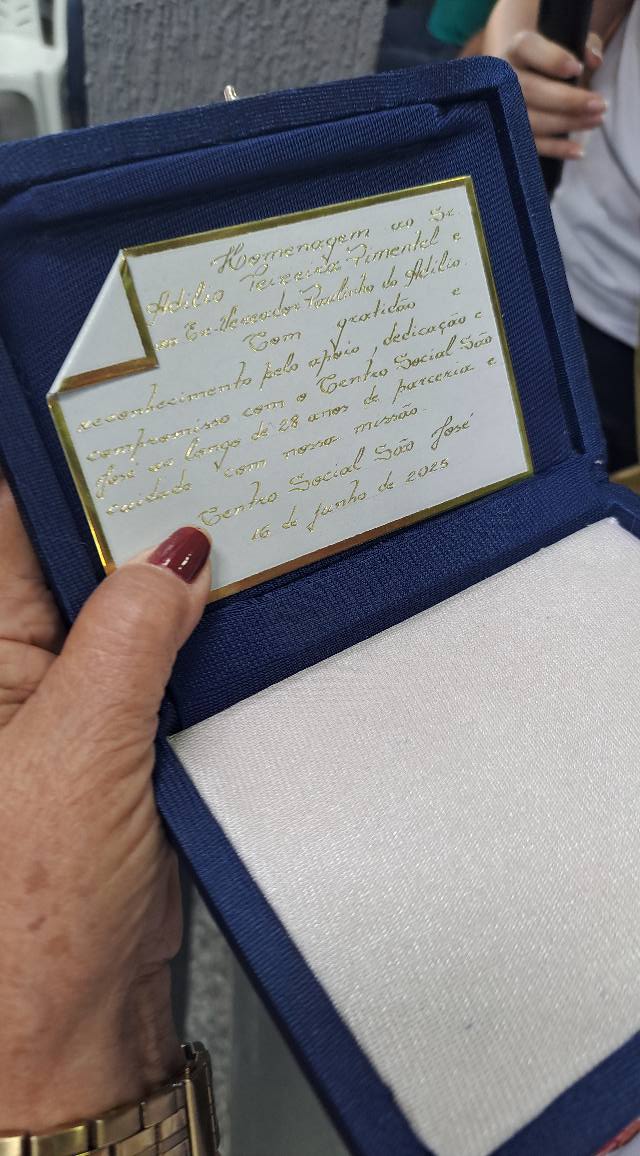 Homenagem ao Sr.
Adilio Teixeira Pimentel e
ao Ex-Vereador Paulinho do Adilio.
Com gratidão e
reconhecimento pelo apoio, dedicação e
compromisso com o Centro Social São
José ao longo de 28 anos de parceria e
cuidado com nossa missão.
Centro Social São José
16 de junho de 2025